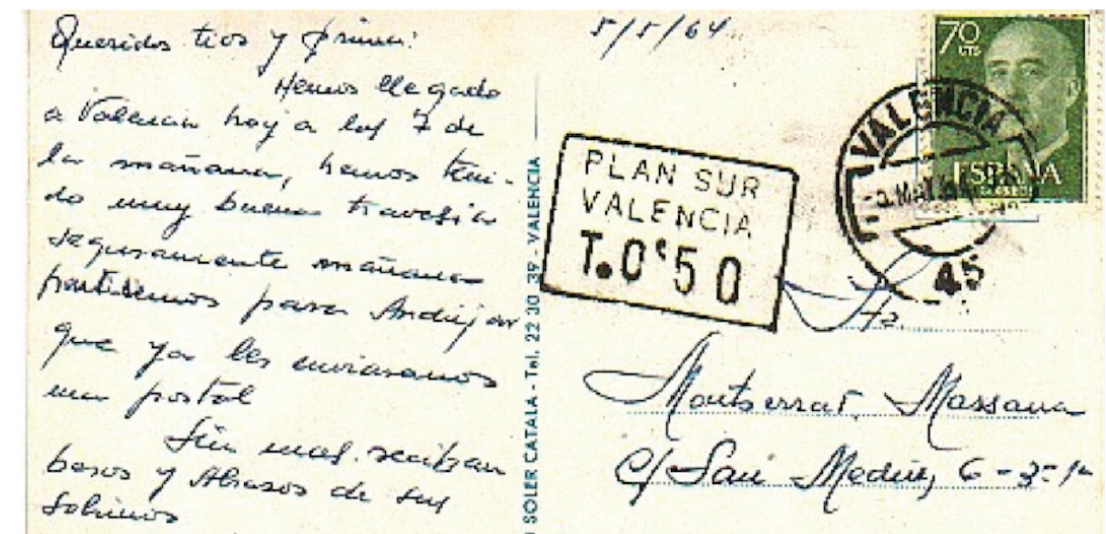 5/5/64
Queridos tios y prima:
Hemos llegado
a Valencia hoy a las 7 de
la mañana, hemos teni-
do muy buena travesia
seguramente mañana
partiremos para Andujar
que ya les enviaremos
una postal
Sin mas reciban
besos y Abrazos de sus
sobrinos
SOLER CATALA - Tel. 22 30 39 - VALENCIA
PLAN SUR
VALENCIA
T.0'50
70
CTS
ESPAÑA
CORREOS
VALENCIA
MAY
45
Montserrat Massana
C/ San Medin, 6-3-1ª